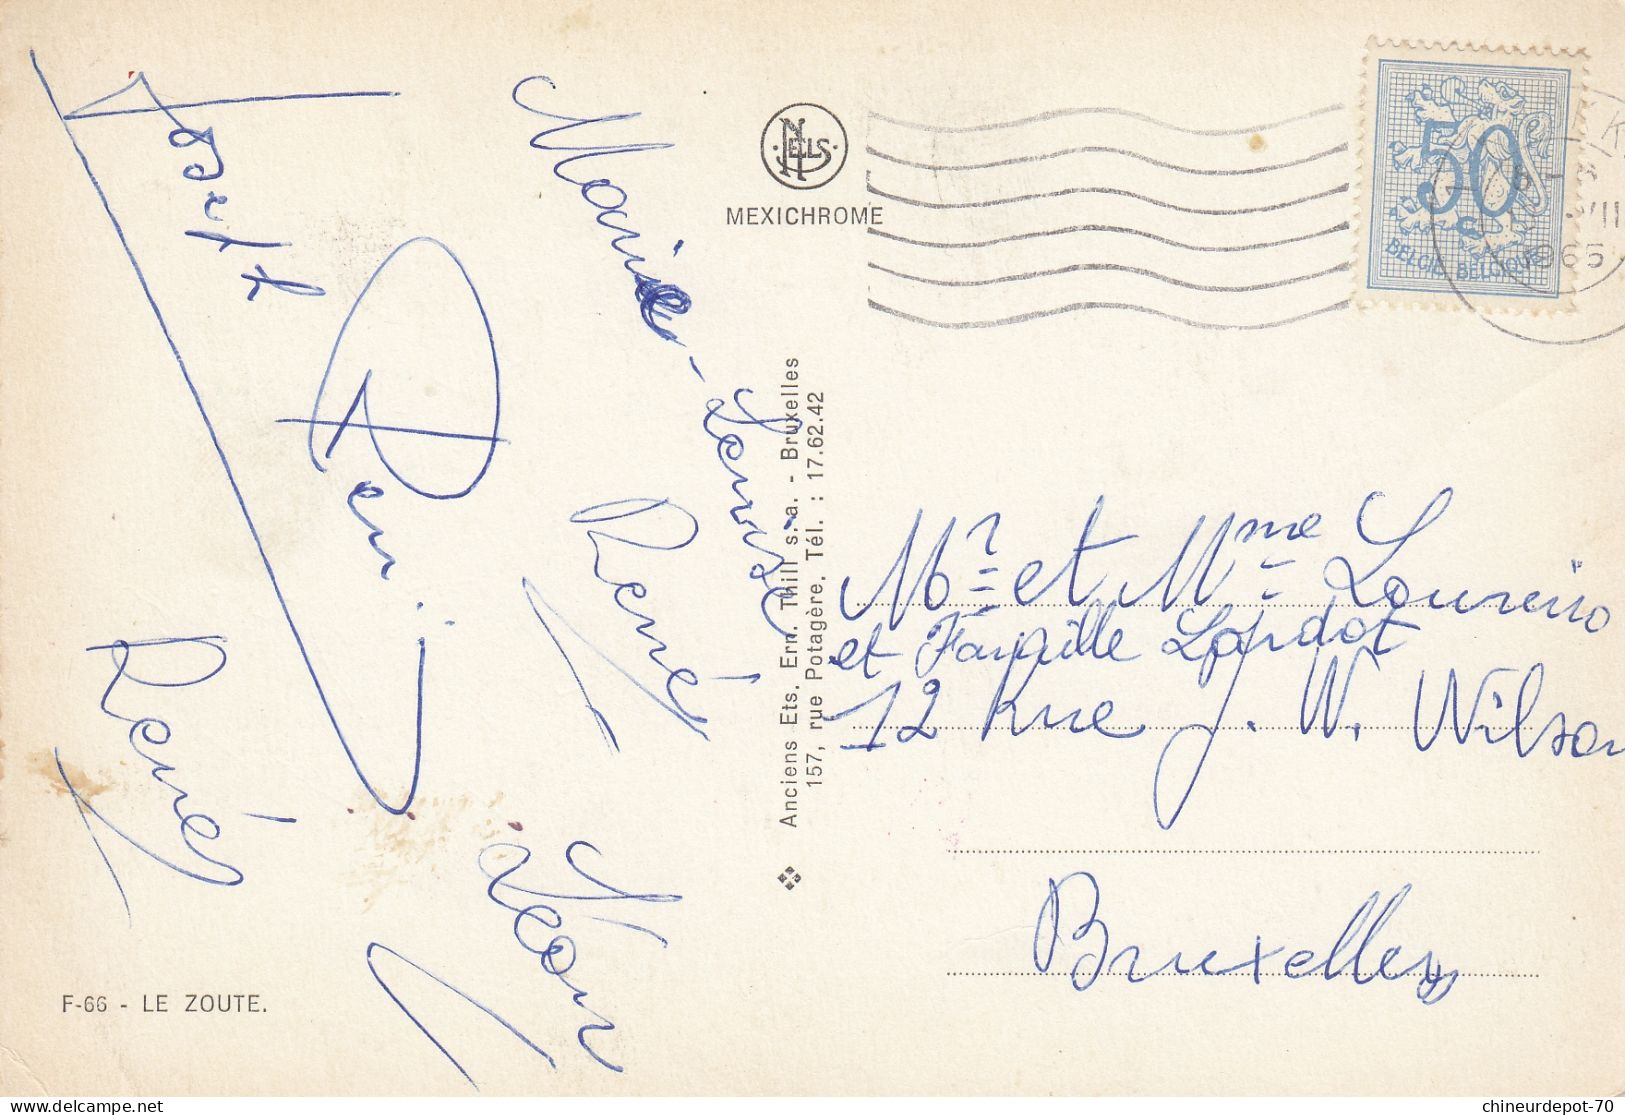 Josett
Marie-Louise
Remi
René
René
Léon
F-66 - LE ZOUTE.
NELLS
MEXICHROME
Anciens Ets. Ern. Thill s. a. - Bruxelles
157, rue Potagère. Tél. : 17.62.42
50
C
BELGIË BELGIQUE
VII
1965
Mr et Mme Loureiro
et Famille Lardot
12 Rue J. W. Wilson
Bruxelles
chineurdepot-70